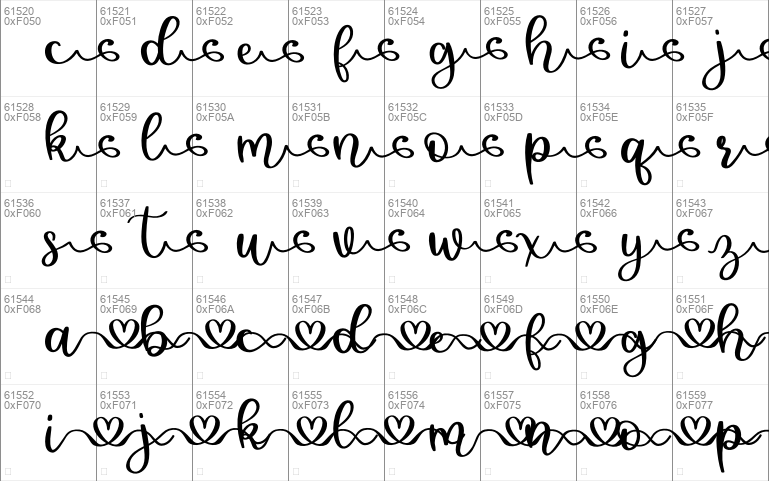 61520 61521 61522 61523 61524 61525 61526 61527
0xF050 0xF051 0xF052 0xF053 0xF054 0xF055 0xF056 0xF057
c d e f g h i j
61528 61529 61530 61531 61532 61533 61534 61535
0xF058 0xF059 0xF05A 0xF05B 0xF05C 0xF05D 0xF05E 0xF05F
k l m n o p q r
61536 61537 61538 61539 61540 61541 61542 61543
0xF060 0xF061 0xF062 0xF063 0xF064 0xF065 0xF066 0xF067
s t u v w x y z
61544 61545 61546 61547 61548 61549 61550 61551
0xF068 0xF069 0xF06A 0xF06B 0xF06C 0xF06D 0xF06E 0xF06F
a b c d e f g h
61552 61553 61554 61555 61556 61557 61558 61559
0xF070 0xF071 0xF072 0xF073 0xF074 0xF075 0xF076 0xF077
i j k l m n o p